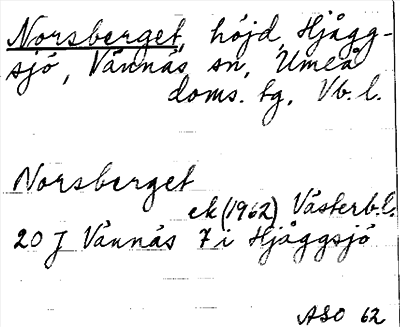 Norsberget, höjd, Hjågg-
sjö, Vännäs sn, Umeå
doms. tg, Vb. l.
Norsberget
ek (1962) Västerb.l.
20 J Vännäs 7 i Hjåggsjö
ASO 62